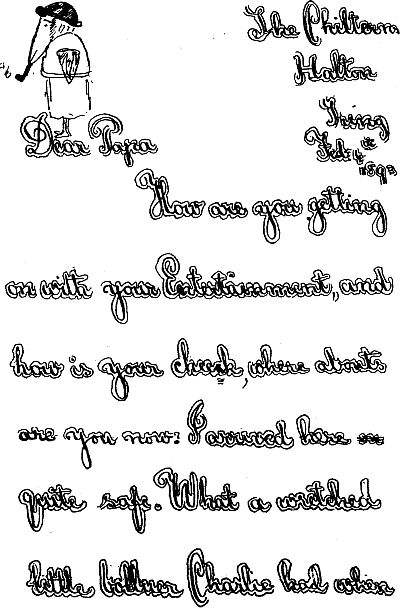 The Chiltern
Halton
Tring
Feb 4th
Dear Papa
1892
How are you getting
on with your Entertainment, and
how is your cheek, where abouts
are you now? I arrived here
quite safe. What a wretched
little Charlie had when